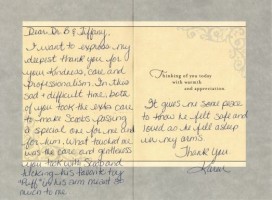 Dear Dr. B & Tiffany,
I want to express my
deepest thank you for
your kindness, care, and
professionalism. In this
sad & difficult time, both
of you took the extra care
to make Scoob's passing
a special one for me and
for him. What touched me
was the care and gentleness
you took with Scoob and
his favorite toy
"Puff" in his arm meant so
much to me.
Thinking of you today
with warmth
and appreciation.
It gives me some peace
to know he felt safe and
loved as he fell asleep
in my arms.
Thank You.
Karen